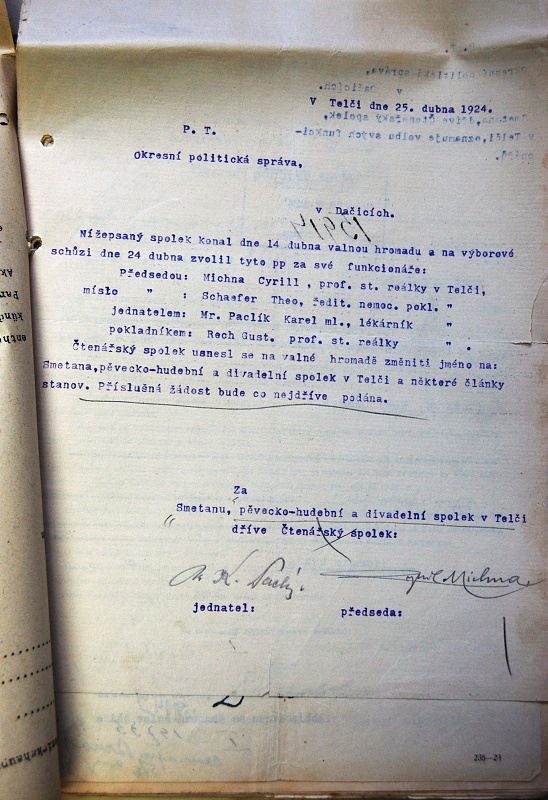 V Telči dne 25. dubna 1924.
P. T.
Okresní politická správa,
v Dačicích.
Nížepsaný spolek konal dne 14 dubna valnou hromadu a na výborové
schůzi dne 24 dubna zvolil tyto pp za své funkcionáře:
Předsedou: Michna Cyrill, prof. st. reálky v Telči,
místo " : Schaefer Theo, ředit. nemoc. pokl. "
jednatelem: Mr. Paclík Karel ml., lékárník "
pokladníkem: Rech Gust. prof. st. reálky " .
Čtenářský spolek usnesl se na valné hromadě změniti jméno na:
Smetana,pěvecko-hudební a divadelní spolek v Telči a některé články
stanov. Příslušná žádost bude co nejdříve podána.
Za
Smetanu, pěvecko-hudební a divadelní spolek v Telči
dříve Čtenářský spolek:
Cyril Michna
jednatel: předseda:
235—24